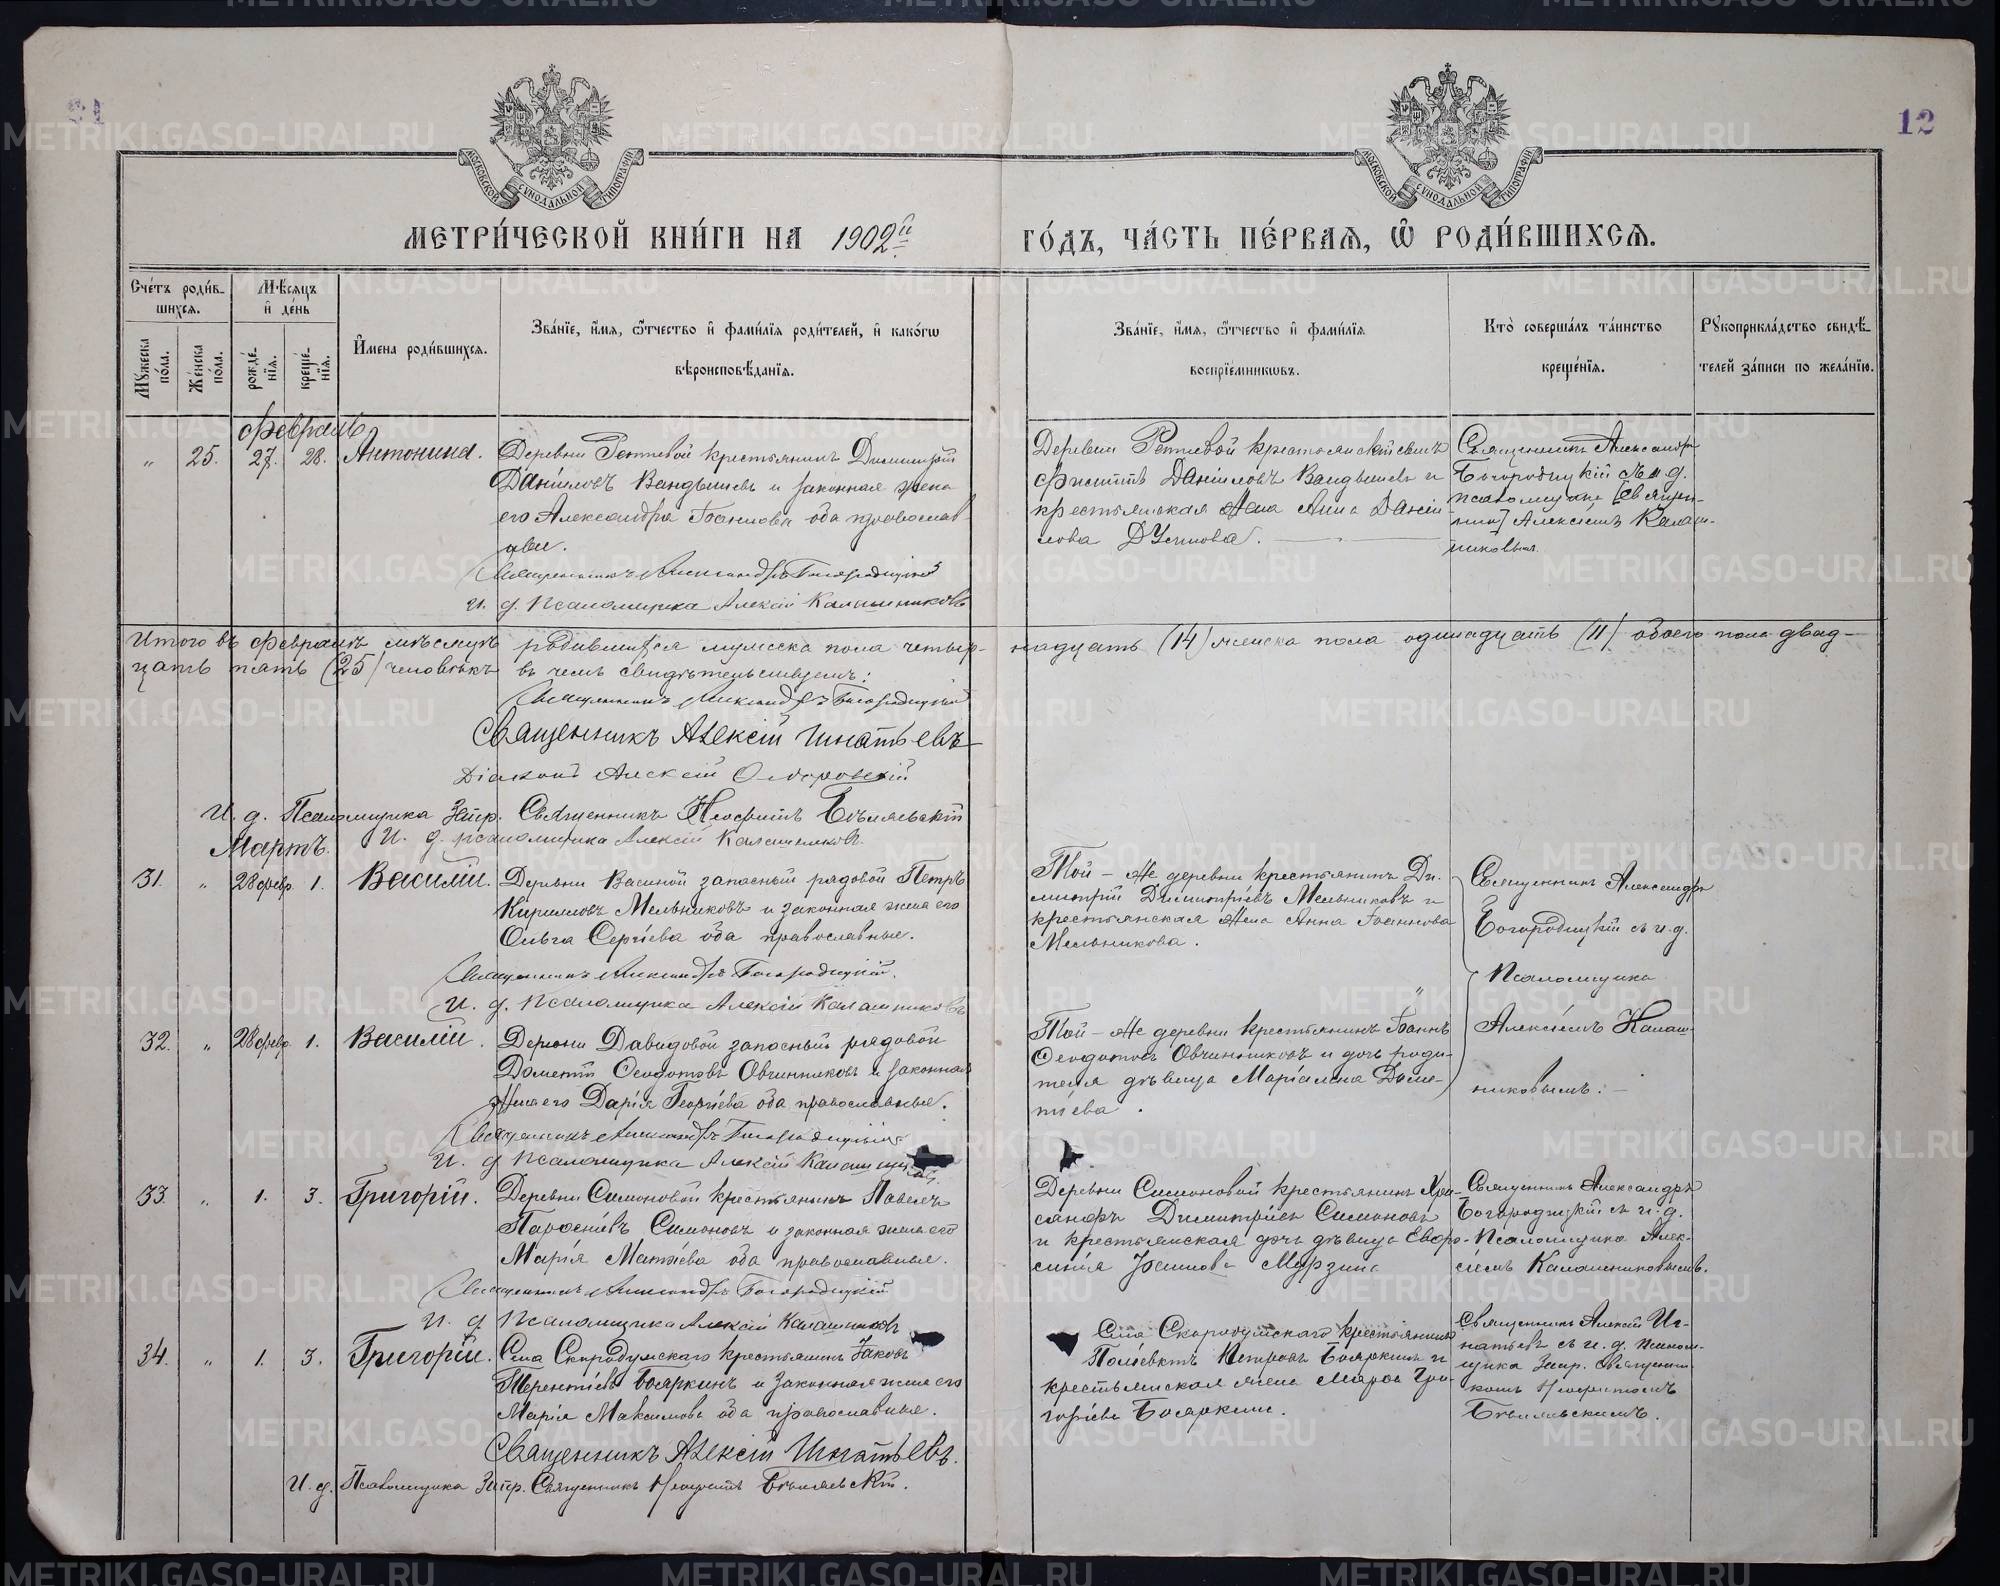 12
МОСКОВСКОЙ СУНОДАЛЬНОЙ ТИПОГРАФІИ
МОСКОВСКОЙ СУНОДАЛЬНОЙ ТИПОГРАФІИ
МЕТРИ́ЧЕСКОЙ КНИ́ГИ НА 1902й ГО́ДЪ, ЧА́СТЬ ПЕ́РВАЯ, Ѽ РОДИ́ВШИХСЯ.
Сче́тъ роди́в-
шихся.
Мѣсяцъ
и҆ де́нь
Му́жеска по́ла.
Же́нска по́ла.
рожде́-
нїя.
креще́-
нїя.
И҆мена роди́вшихся.
Зва́нїе, и҆́мя, ѻ҆́тчество и҆ фами́лїя роди́телей, и҆ како́гѡ
вѣроисповѣ́данїя.
Зва́нїе, и҆́мя, ѻ҆́тчество и҆ фами́лїя
воспрїе́мникѡвъ.
Кто̀ соверша́лъ та́инство
креще́нїя.
Рꙋкоприкла́дство свидѣ́-
телей за́писи по жела́нїю.
Февраль
„ 25. 27. 28. Антонина.
Деревни Реттевой крестьянинъ Димитрій
Даніиловъ Вандышевъ и законная жена
его Александра Іоаннова оба православ-
ные.
Священникъ Александръ Богородицкій
и. д. Псаломщика Алексій Калашниковъ
Деревни Реттевой крестьянскій сынъ
Даніиловъ Вандышевъ и
крестьянская жена Анна Даніи-
лова
Священникъ Александръ
Богородицкій съ и. д.
псаломщика
Алексіемъ Калаш-
никовымъ.
Итого въ Февралѣ мѣсяцѣ родившихся мужеска пола четыр-
надцать (14) женска пола одинадцать (11) обоего пола двад-
цать пять (25) человѣкъ въ чемъ свидѣтельствуемъ:
Священникъ Александръ Богородицкій
Священникъ Алексій Игнатьевъ
Діаконъ Алексій
И. д. Псаломщика Запр. Священникъ Неофитъ
И. д. псаломщика Алексій Калашниковъ.
Мартъ.
31. „ 28 февр. 1. Василій.
Деревни Васиной запасный рядовой Петръ
Кирилловъ Мельниковъ и законная жена его
Ольга Сергіева оба православные.
Священникъ Александръ Богородицкій.
И. д. Псаломщика Алексій Калашниковъ
Той-же деревни крестьянинъ Ди-
митрій Димитріевъ Мельниковъ и
крестьянская жена Анна Іоаннова
Мельникова.
Священникъ Александръ
Богородицкій съ и. д.
Псаломщика
Алексіемъ Калаш-
никовымъ.
32. „ 28 февр. 1. Василій.
Деревни Давидовой запасный рядовой
Дометій Ѳеодотовъ Овчинниковъ и законная
жена его Дарія Георгіева оба православные.
Священникъ Александръ Богородицкій
И. д. Псаломщика Алексій
Той-же деревни крестьянинъ Іоаннъ
Ѳеодотовъ Овчинниковъ и дочь роди-
теля дѣвица Маріамна Доме-
тіева.
33. „ 1. 3. Григорій.
Деревни Симоновой крестьянинъ Павелъ
Симоновъ и законная жена его
Марія Матѳіева оба православные.
Священникъ Александръ Богородицкій
И. д. Псаломщика Алексій Калашниковъ
Деревни Симоновой крестьянинъ Хри-
санфъ Димитріевъ Симоновъ
и крестьянская дочь дѣвица Евфро-
синія Іоаннова Мурзина
Священникъ Александръ
Богородицкій съ и. д.
Псаломщика Алек-
сіемъ Калашниковымъ.
34. „ 1. 3. Григорій.
Села Скородумскаго крестьянинъ Іаковъ
Терентіевъ Бояркинъ и законная жена его
Марія Максимова оба православные.
Священникъ Алексій Игнатьевъ.
И. д. Псаломщика Запр. Священникъ Неофитъ
Села Скородумскаго крестьянинъ
Поліевктъ Петровъ Бояркинъ и
крестьянская жена Марѳа Гри-
горіева Бояркина.
Священникъ Алексій Иг-
натьевъ съ и. д. Псалом-
щика Запр. Священни-
комъ Неофитомъ
METRIKI.GASO-URAL.RU